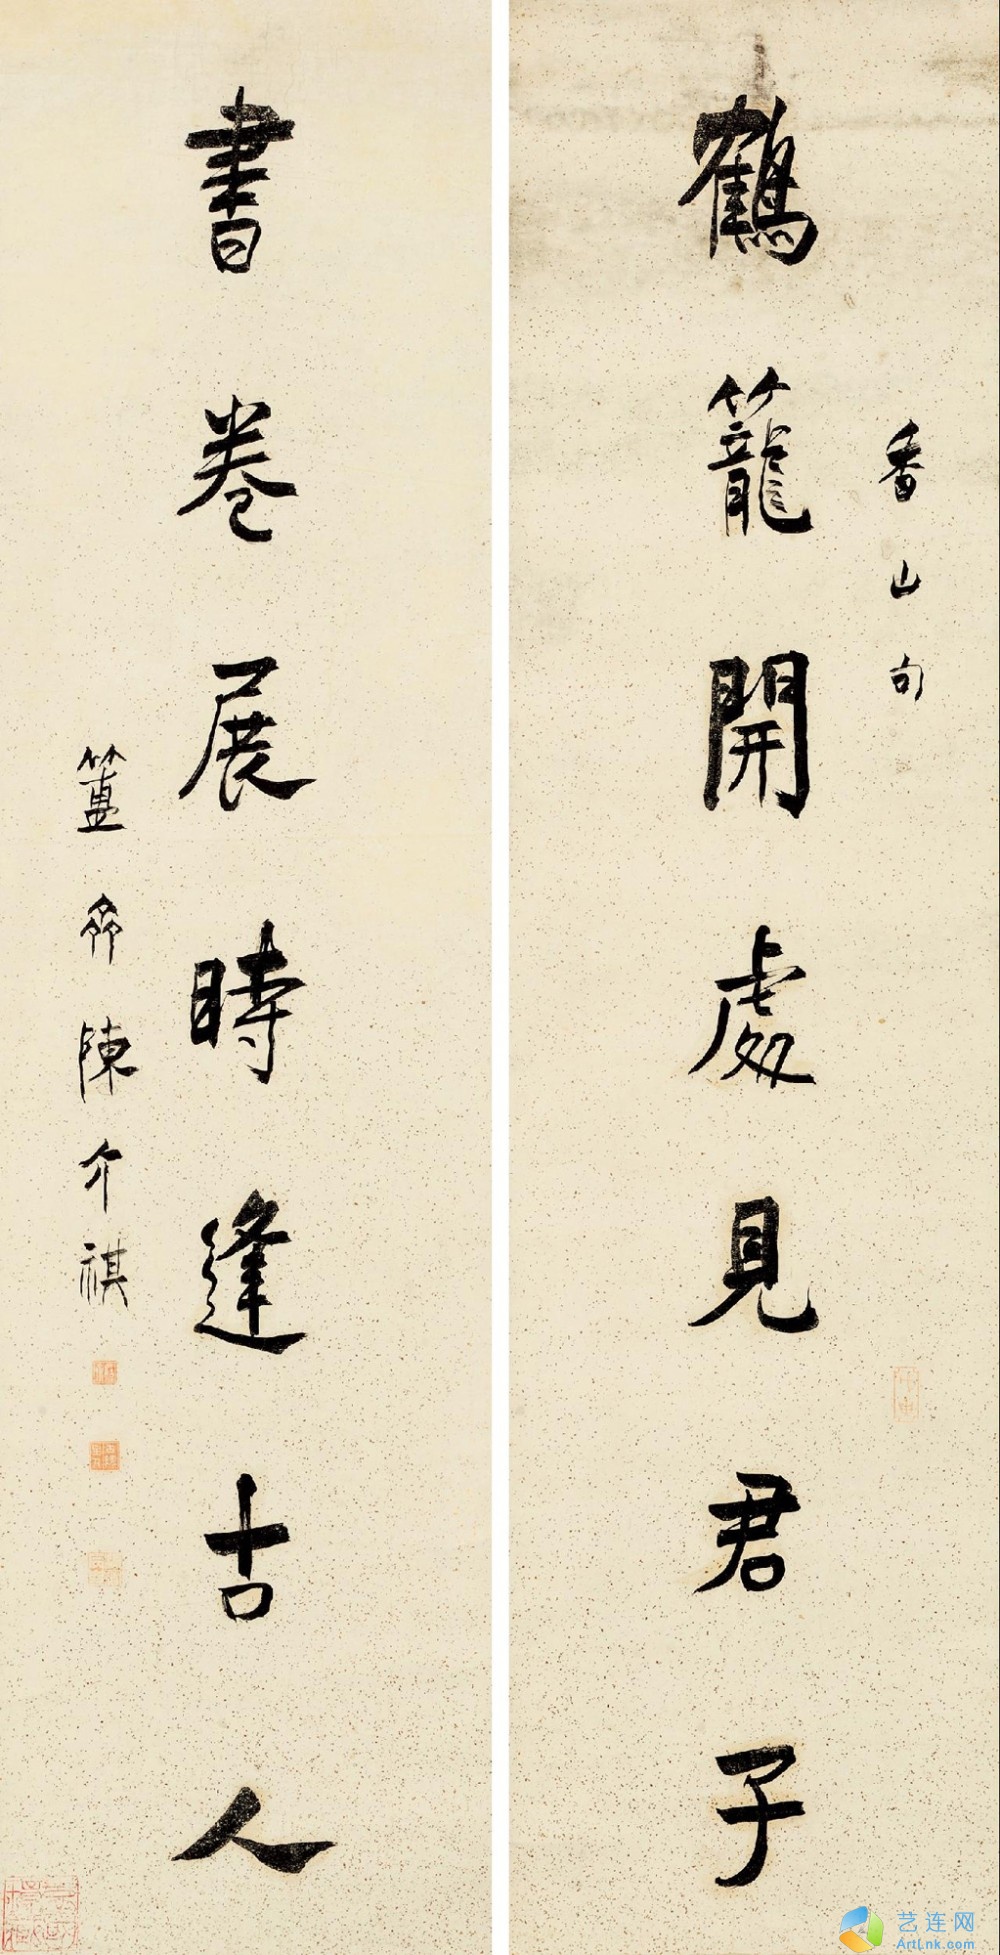 鶴籠開處見君子
香山句
書卷展時逢古人
簠齋陳介祺
艺连网
ArtLnk.com